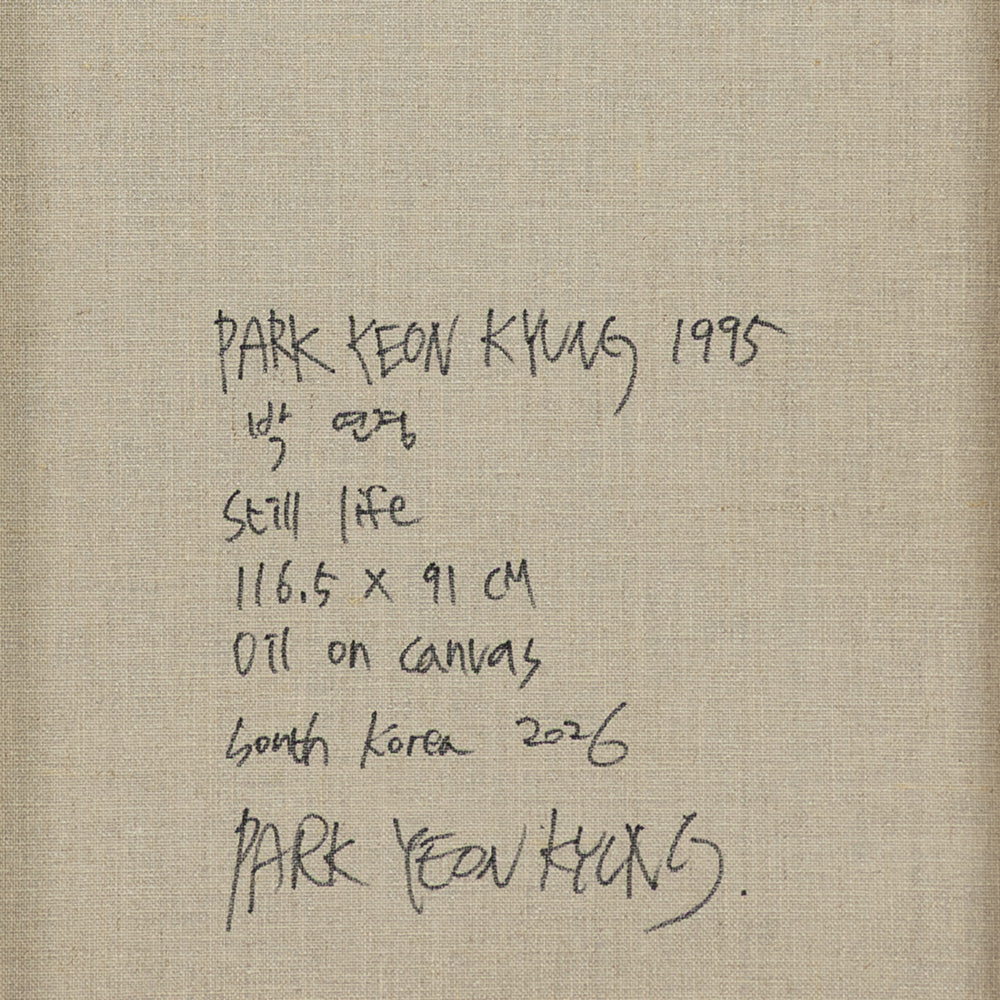 PARK YEON KYUNG 1995
박 연경
Still life
116.5 X 91 CM
Oil on canvas
South Korea 2026
PARK YEON KYUNG.